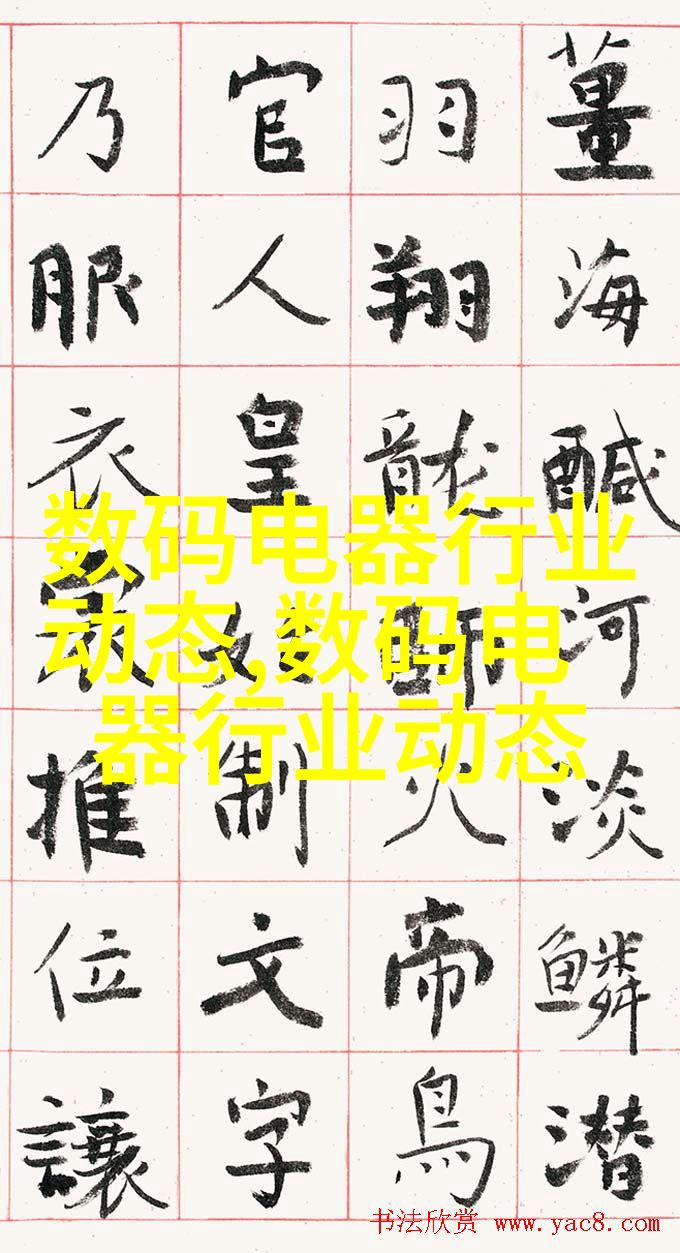 薑海鹹河淡鱗潛
羽翔龍師火帝鳥
官人皇始制文字
乃服衣裳推位讓
数码电器行业
动态,数码电
器行业动态
书法欣赏 www.yac8.com